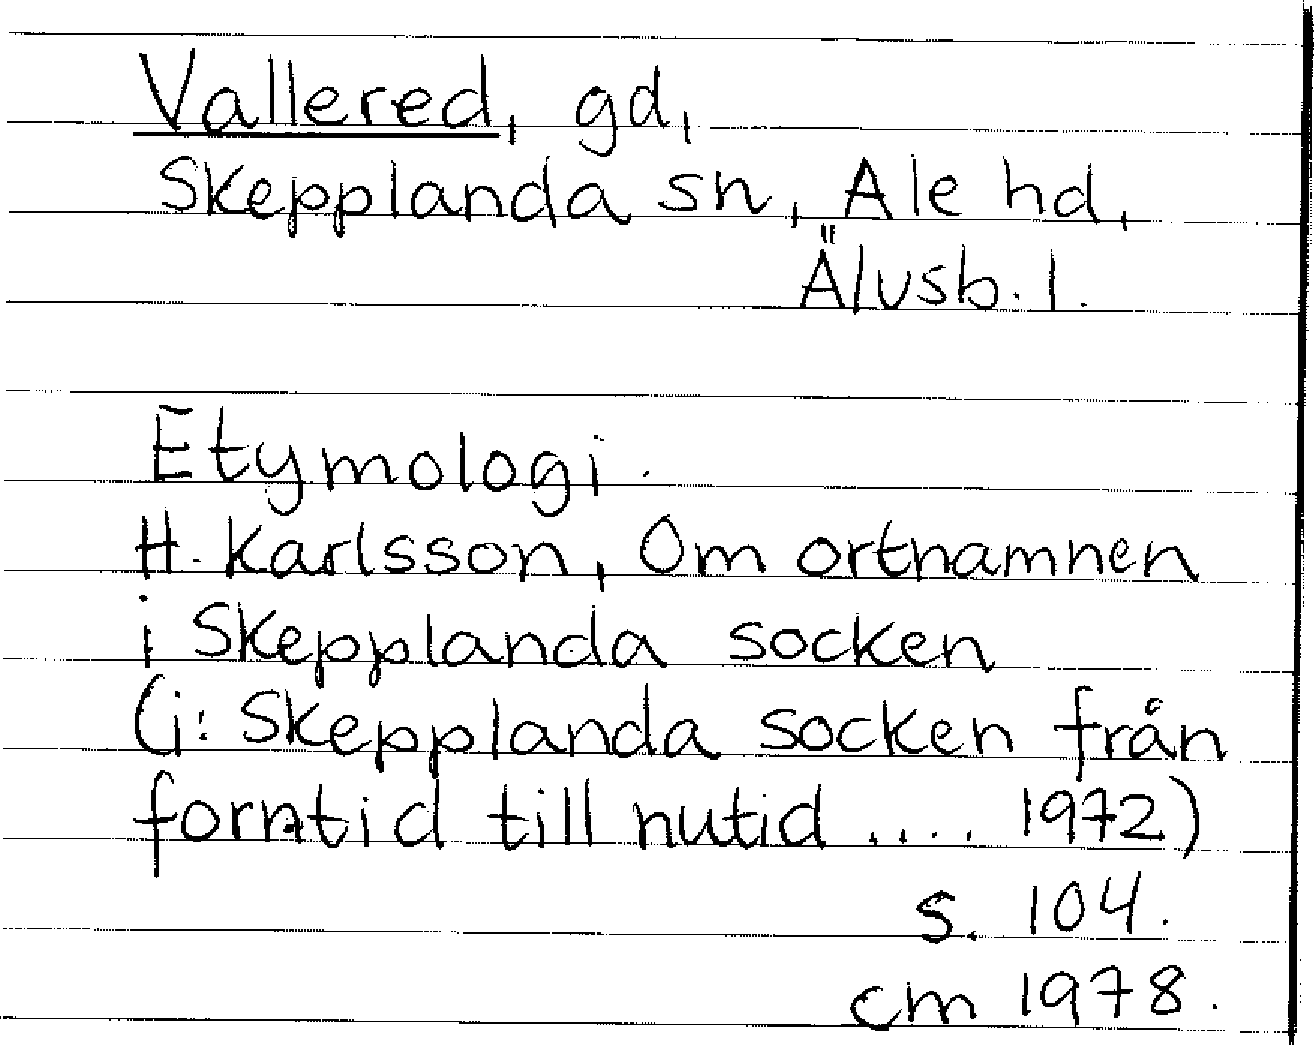 Vallered, gd,
Skepplanda sn, Ale hd,
Älvsb. l.
Etymologi.
H. Karlsson, Om ortnamnen
i Skepplanda socken
(i: Skepplanda socken från
forntid till nutid .... 1972)
s. 104.
cm 1978.